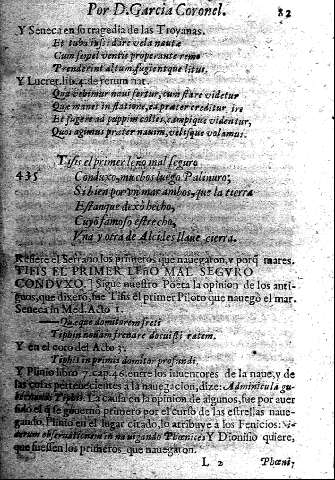 Por D. Garcia Coronel. 82
Y Seneca en su tragedia de las Troyanas.
Et tuba iussit dare vela nauta
Cum simpel ventis properante remo
Prenderint altum, fugientque litus.
Y Lucret. lib. 4. de rerum nat.
Qua vehimur naui fertur, cum stare videtur
Quæ manet in statione, ea præter creditur ire
Et fugere ad puppim colles, campique videntur,
Quos agimus præter nauim, velisque volamus.
Tifis el primer leño mal seguro
435 Conduxo, muchos luego Palinuro;
Si bien por vn mar ambos, que la tierra
Estanque dexò hecho,
Cuyo famoso estrecho,
Vna y otra de Alcides llaue cierra.
Refiere el Serrano, los primeros que nauegaron, y porq̃ mares.
TIFIS EL PRIMER LEñO MAL SEGVRO
CONDVXO.] Sigue nuestro Poeta la opinion de los anti-
guos, que dixerõ, fue Tifis el primer Piloto que nauegò el mar.
Seneca in Med. Acto 1.
—Quæque domitorem freti
Tiphin nouam frenare docuisti ratem.
Y en el coro del Acto 3.
Tiphis in primis domitor profundi
Y Plinio libro 7. cap. 46. entre los inuentores de la naue, y de
las cosas pertenecientes a la nauegacion, dize: Adminicula gu-
bernandi Tiphis. La causa en la opinion de algunos, fue por auer
sido el que gouernò primero por el curso de las estrellas naue-
gando, Plinio en el lugar citado, lo atribuye a los Fenicios: Si-
derum obseruationem in nauigando Phœnices; Y Dionisio quiere,
que fuessen los primeros que nauegaron.
L 2 Phœni-